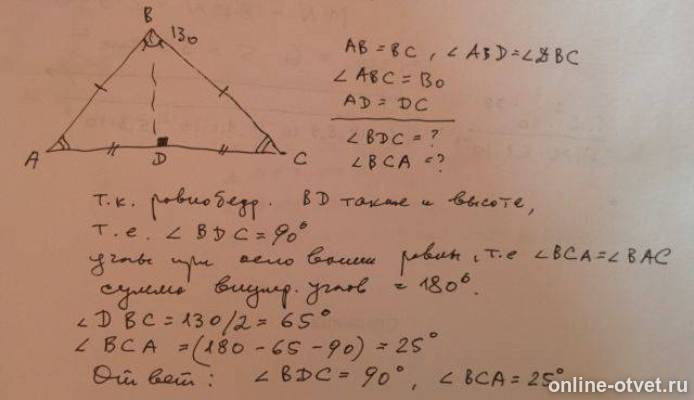 B
130
A
D
C
AB = BC, ∠ABD = ∠DBC
∠ABC = 130
AD = DC
∠BDC = ?
∠BCA = ?
т.к. равнобедр. BD также и высота,
т.е. ∠BDC = 90°
углы при основании равны, т.е ∠BCA = ∠BAC
сумма внутр. углов = 180°.
∠DBC = 130/2 = 65°
∠BCA = (180 - 65 - 90) = 25°
Ответ: ∠BDC = 90°, ∠BCA = 25°
online-otvet.ru